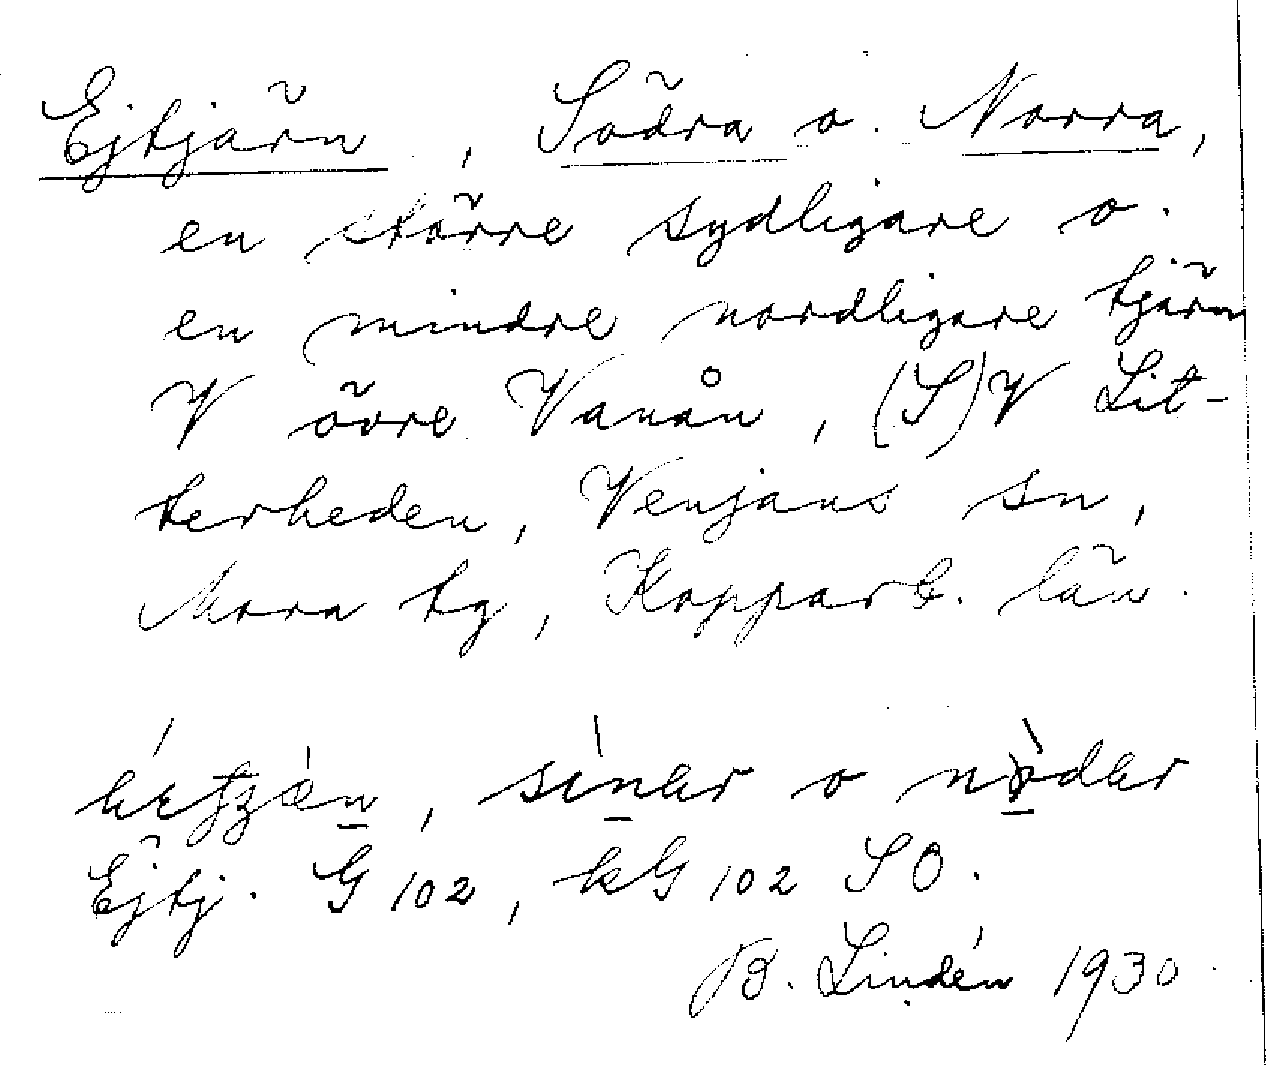 Ejtjärn, Södra o. Norra,
en större sydligare o.
en mindre nordligare tjärn
V övre Vanån, (S)V Lit-
terheden, Venjans sn,
Mora tg, Kopparb. län.
o
Ejtj. G 102, kG 102 SO.
B. Lindén 1930